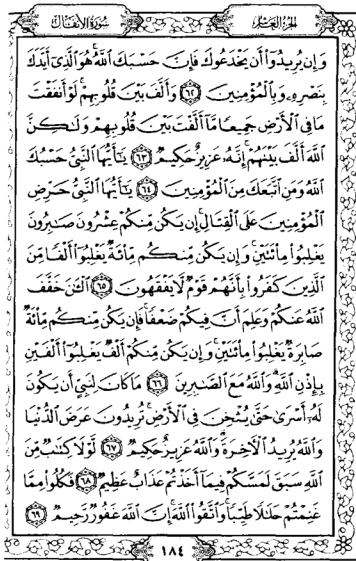 الجزء العاشر
سورة الأنفال
وَإِن يُرِيدُوٓا۟ أَن يَخْدَعُوكَ فَإِنَّ حَسْبَكَ ٱللَّهُ هُوَ ٱلَّذِىٓ أَيَّدَكَ
بِنَصْرِهِۦ وَبِٱلْمُؤْمِنِينَ ٦٢ وَأَلَّفَ بَيْنَ قُلُوبِهِمْ لَوْ أَنفَقْتَ
مَا فِى ٱلْأَرْضِ جَمِيعًا مَّآ أَلَّفْتَ بَيْنَ قُلُوبِهِمْ وَلَـٰكِنَّ
ٱللَّهَ أَلَّفَ بَيْنَهُمْ إِنَّهُۥ عَزِيزٌ حَكِيمٌ ٦٣ يَـٰٓأَيُّهَا ٱلنَّبِىُّ حَسْبُكَ
ٱللَّهُ وَمَنِ ٱتَّبَعَكَ مِنَ ٱلْمُؤْمِنِينَ ٦٤ يَـٰٓأَيُّهَا ٱلنَّبِىُّ حَرِّضِ
ٱلْمُؤْمِنِينَ عَلَى ٱلْقِتَالِ إِن يَكُن مِّنكُمْ عِشْرُونَ صَـٰبِرُونَ
يَغْلِبُوا۟ مِا۟ئَتَيْنِ وَإِن يَكُن مِّنكُم مِّا۟ئَةٌ يَغْلِبُوٓا۟ أَلْفًا مِّنَ
ٱلَّذِينَ كَفَرُوا۟ بِأَنَّهُمْ قَوْمٌ لَّا يَفْقَهُونَ ٦٥ ٱلْـَٔـٰنَ خَفَّفَ
ٱللَّهُ عَنكُمْ وَعَلِمَ أَنَّ فِيكُمْ ضَعْفًا فَإِن يَكُن مِّنكُم مِّا۟ئَةٌ
صَابِرَةٌ يَغْلِبُوا۟ مِا۟ئَتَيْنِ وَإِن يَكُن مِّنكُمْ أَلْفٌ يَغْلِبُوٓا۟ أَلْفَيْنِ
بِإِذْنِ ٱللَّهِ وَٱللَّهُ مَعَ ٱلصَّـٰبِرِينَ ٦٦ مَا كَانَ لِنَبِىٍّ أَن يَكُونَ
لَهُۥٓ أَسْرَىٰ حَتَّىٰ يُثْخِنَ فِى ٱلْأَرْضِ تُرِيدُونَ عَرَضَ ٱلدُّنْيَا
وَٱللَّهُ يُرِيدُ ٱلْـَٔاخِرَةَ وَٱللَّهُ عَزِيزٌ حَكِيمٌ ٦٧ لَّوْلَا كِتَـٰبٌ مِّنَ
ٱللَّهِ سَبَقَ لَمَسَّكُمْ فِيمَآ أَخَذْتُمْ عَذَابٌ عَظِيمٌ ٦٨ فَكُلُوا۟ مِمَّا
غَنِمْتُمْ حَلَـٰلًا طَيِّبًا وَٱتَّقُوا۟ ٱللَّهَ إِنَّ ٱللَّهَ غَفُورٌ رَّحِيمٌ ٦٩
١٨٤